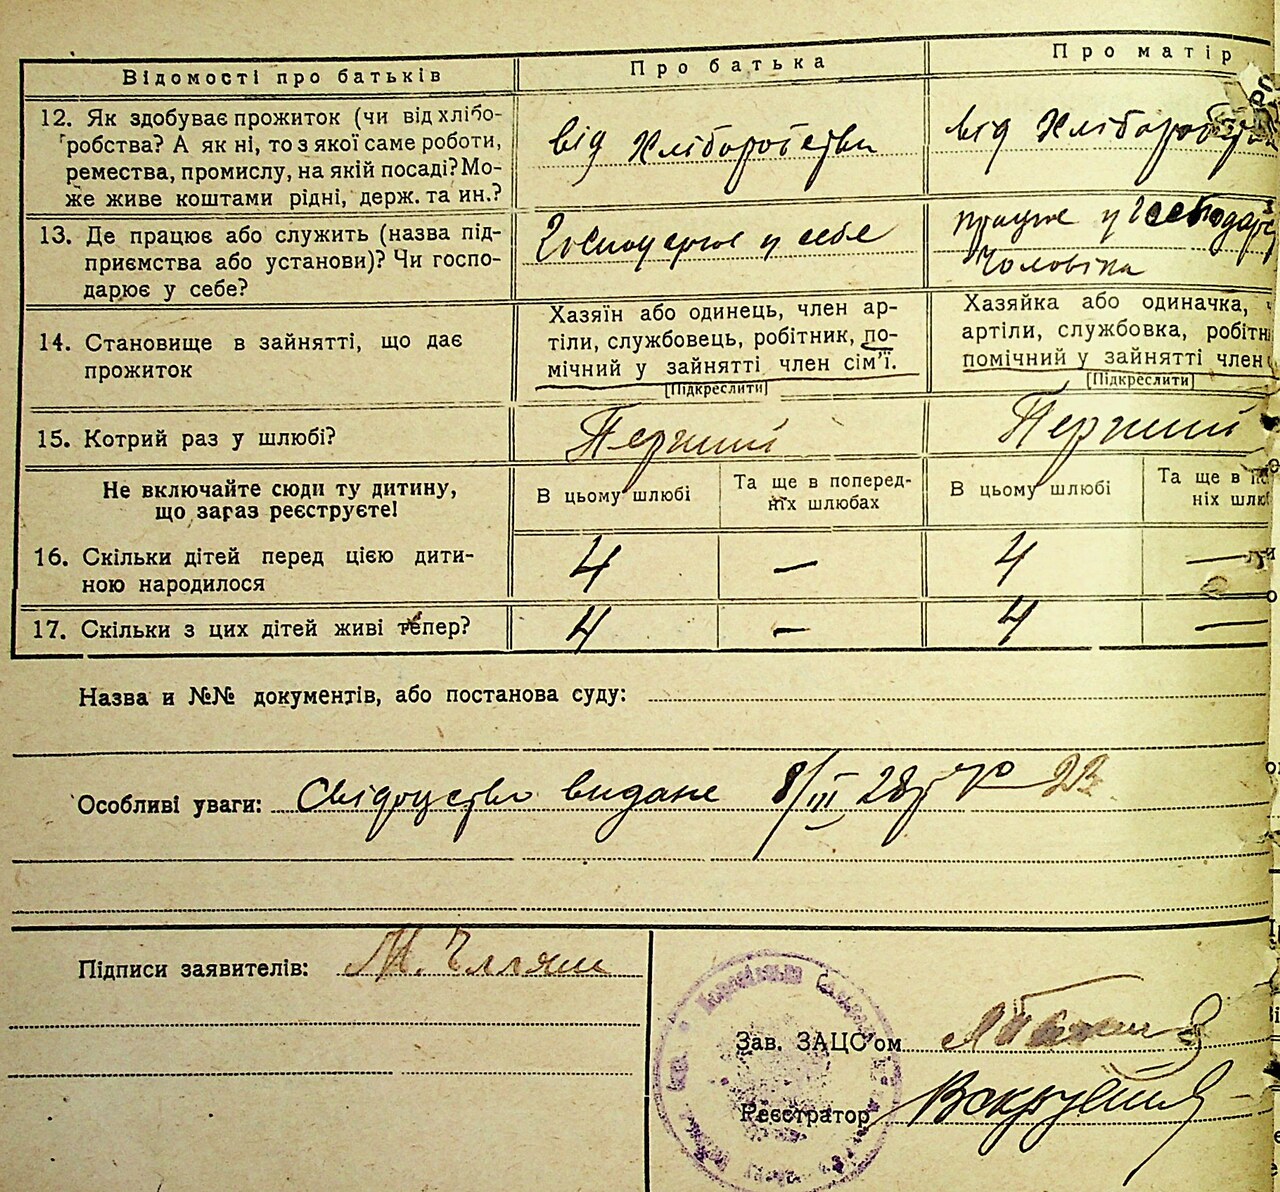 Відомості про батьків
Про батька
Про матір
12. Як здобуває прожиток (чи від хлібо-
робства? А як ні, то з якої саме роботи,
ремества, промислу, на якій посаді? Мо-
же живе коштами рідні, держ. та ин.?
від хліборобства
від хліборобства
13. Де працює або служить (назва під-
приємства або установи)? Чи госпо-
дарює у себе?
Господарює у себе
працює у господарс
чоловіка
14. Становище в зайнятті, що дає
прожиток
Хазяїн або одинець, член ар-
тіли, службовець, робітник, по-
мічний у зайнятті член сім'ї.
[Підкреслити]
Хазяйка або одиначка,
артіли, службовка, робітн
помічний у зайнятті член
[Підкреслити]
15. Котрий раз у шлюбі?
Перший
Перший
Не включайте сюди ту дитину,
що зараз реєструєте!
В цьому шлюбі
Та ще в поперед-
ніх шлюбах
В цьому шлюбі
Та ще в по
ніх шлюб
16. Скільки дітей перед цією дити-
ною народилося
4 — 4 —
17. Скільки з цих дітей живі тепер?
4 — 4 —
Назва и №№ документів, або постанова суду:
Особливі уваги: Свідоцтво видане 8/III 28р № 23
Підписи заявителів: М.
Зав. ЗАЦС'ом
Реєстратор